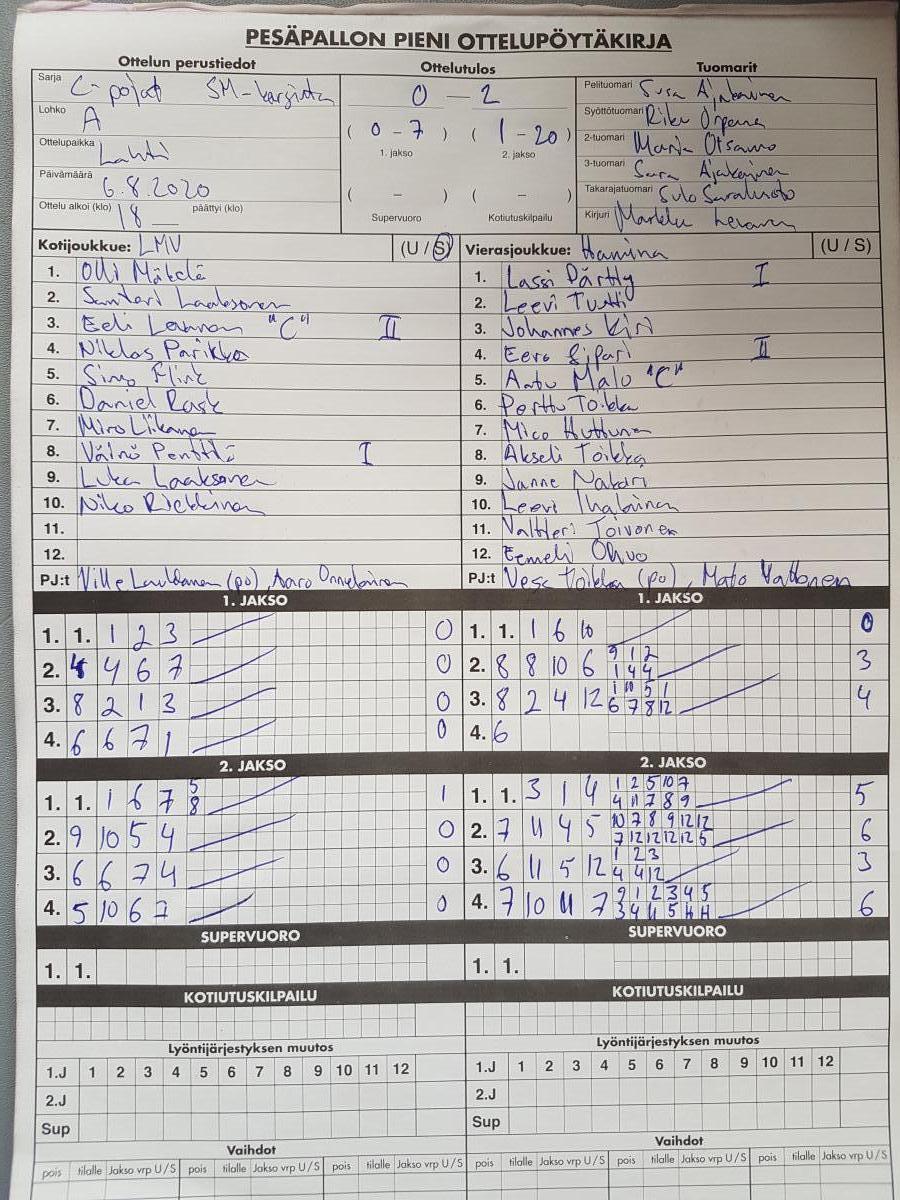 PESÄPALLON PIENI OTTELUPÖYTÄKIRJA
Ottelun perustiedot
Ottelutulos
Tuomarit
Sarja C-pojat SM-karsinta
Lohko A
Ottelupaikka Lahti
Päivämäärä 6.8.2020
Ottelu alkoi (klo) 18 päättyi (klo)
0 - 2
( 0 - 7 ) ( 1 - 20 )
1. jakso 2. jakso
( - ) ( - )
Supervuoro Kotiutuskilpailu
Pelituomari Susa
Syöttötuomari Riku
2-tuomari Maria Otsamo
3-tuomari Sara
Takarajatuomari Sulo
Kirjuri Markku
Kotijoukkue: LMV (U / S)
1. Olli Mäkelä
2. Santeri Laaksonen
3. Eeli "C" II
4. Niklas Parikka
5. Simo Flink
6. Daniel Rask
7. Miro Liikanen
8. Väinö Penttilä I
9. Luka Laaksonen
10. Niko
11.
12.
PJ:t Ville (po), Aaro
Vierasjoukkue: Hamina (U / S)
1. Lassi Pärtty I
2. Leevi Tutti
3. Johannes Kiri
4. Eero Sipari II
5. Anttu Malo "C"
6. Perttu Toikka
7. Mico Huttunen
8. Akseli Toikka
9. Janne Nakari
10. Leevi Ihalainen
11. Valtteri Toivonen
12. Eemeli Ohvo
PJ:t Vesa Hoikkala (po), Mato Vattonen
1. JAKSO
1. 1. 1 2 3 0
2. 4 4 6 7 0
3. 8 2 1 3 0
4. 6 6 7 1 0
1. JAKSO
1. 1. 1 6 10 0
2. 8 8 10 6 9 1 2 3
1 4 4
3. 8 2 4 12 1 10 5 1 4
6 7 8 12
4. 6
2. JAKSO
1. 1. 1 6 7 5 1
8
2. 9 10 5 4 0
3. 6 6 7 4 0
4. 5 10 6 7 0
2. JAKSO
1. 1. 3 1 4 1 2 5 10 7 5
4 11 7 8 9
2. 7 11 4 5 10 7 8 9 12 12 6
7 12 12 12 12 5
3. 6 11 5 12 1 2 3 3
4 4 12
4. 7 10 11 7 9 1 2 3 4 5 6
3 4 11 5
SUPERVUORO
1. 1.
SUPERVUORO
1. 1.
KOTIUTUSKILPAILU
KOTIUTUSKILPAILU
Lyöntijärjestyksen muutos
1.J 1 2 3 4 5 6 7 8 9 10 11 12
2.J
Sup
Lyöntijärjestyksen muutos
1.J 1 2 3 4 5 6 7 8 9 10 11 12
2.J
Sup
Vaihdot
pois tilalle Jakso vrp U / S pois tilalle Jakso vrp U / S pois tilalle Jakso vrp U / S
Vaihdot
pois tilalle Jakso vrp U / S pois tilalle Jakso vrp U / S pois tilalle Jakso vrp U / S